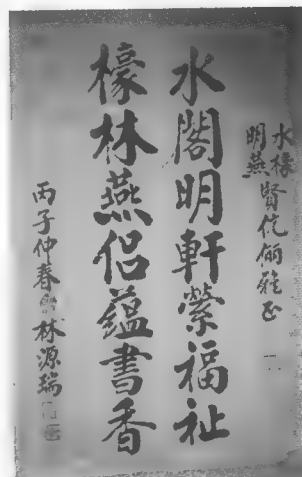 水檺
明燕賢伉俪雅正
水閣明軒縈福祉
檺林燕侣蕴書香
丙子仲春 林源瑞